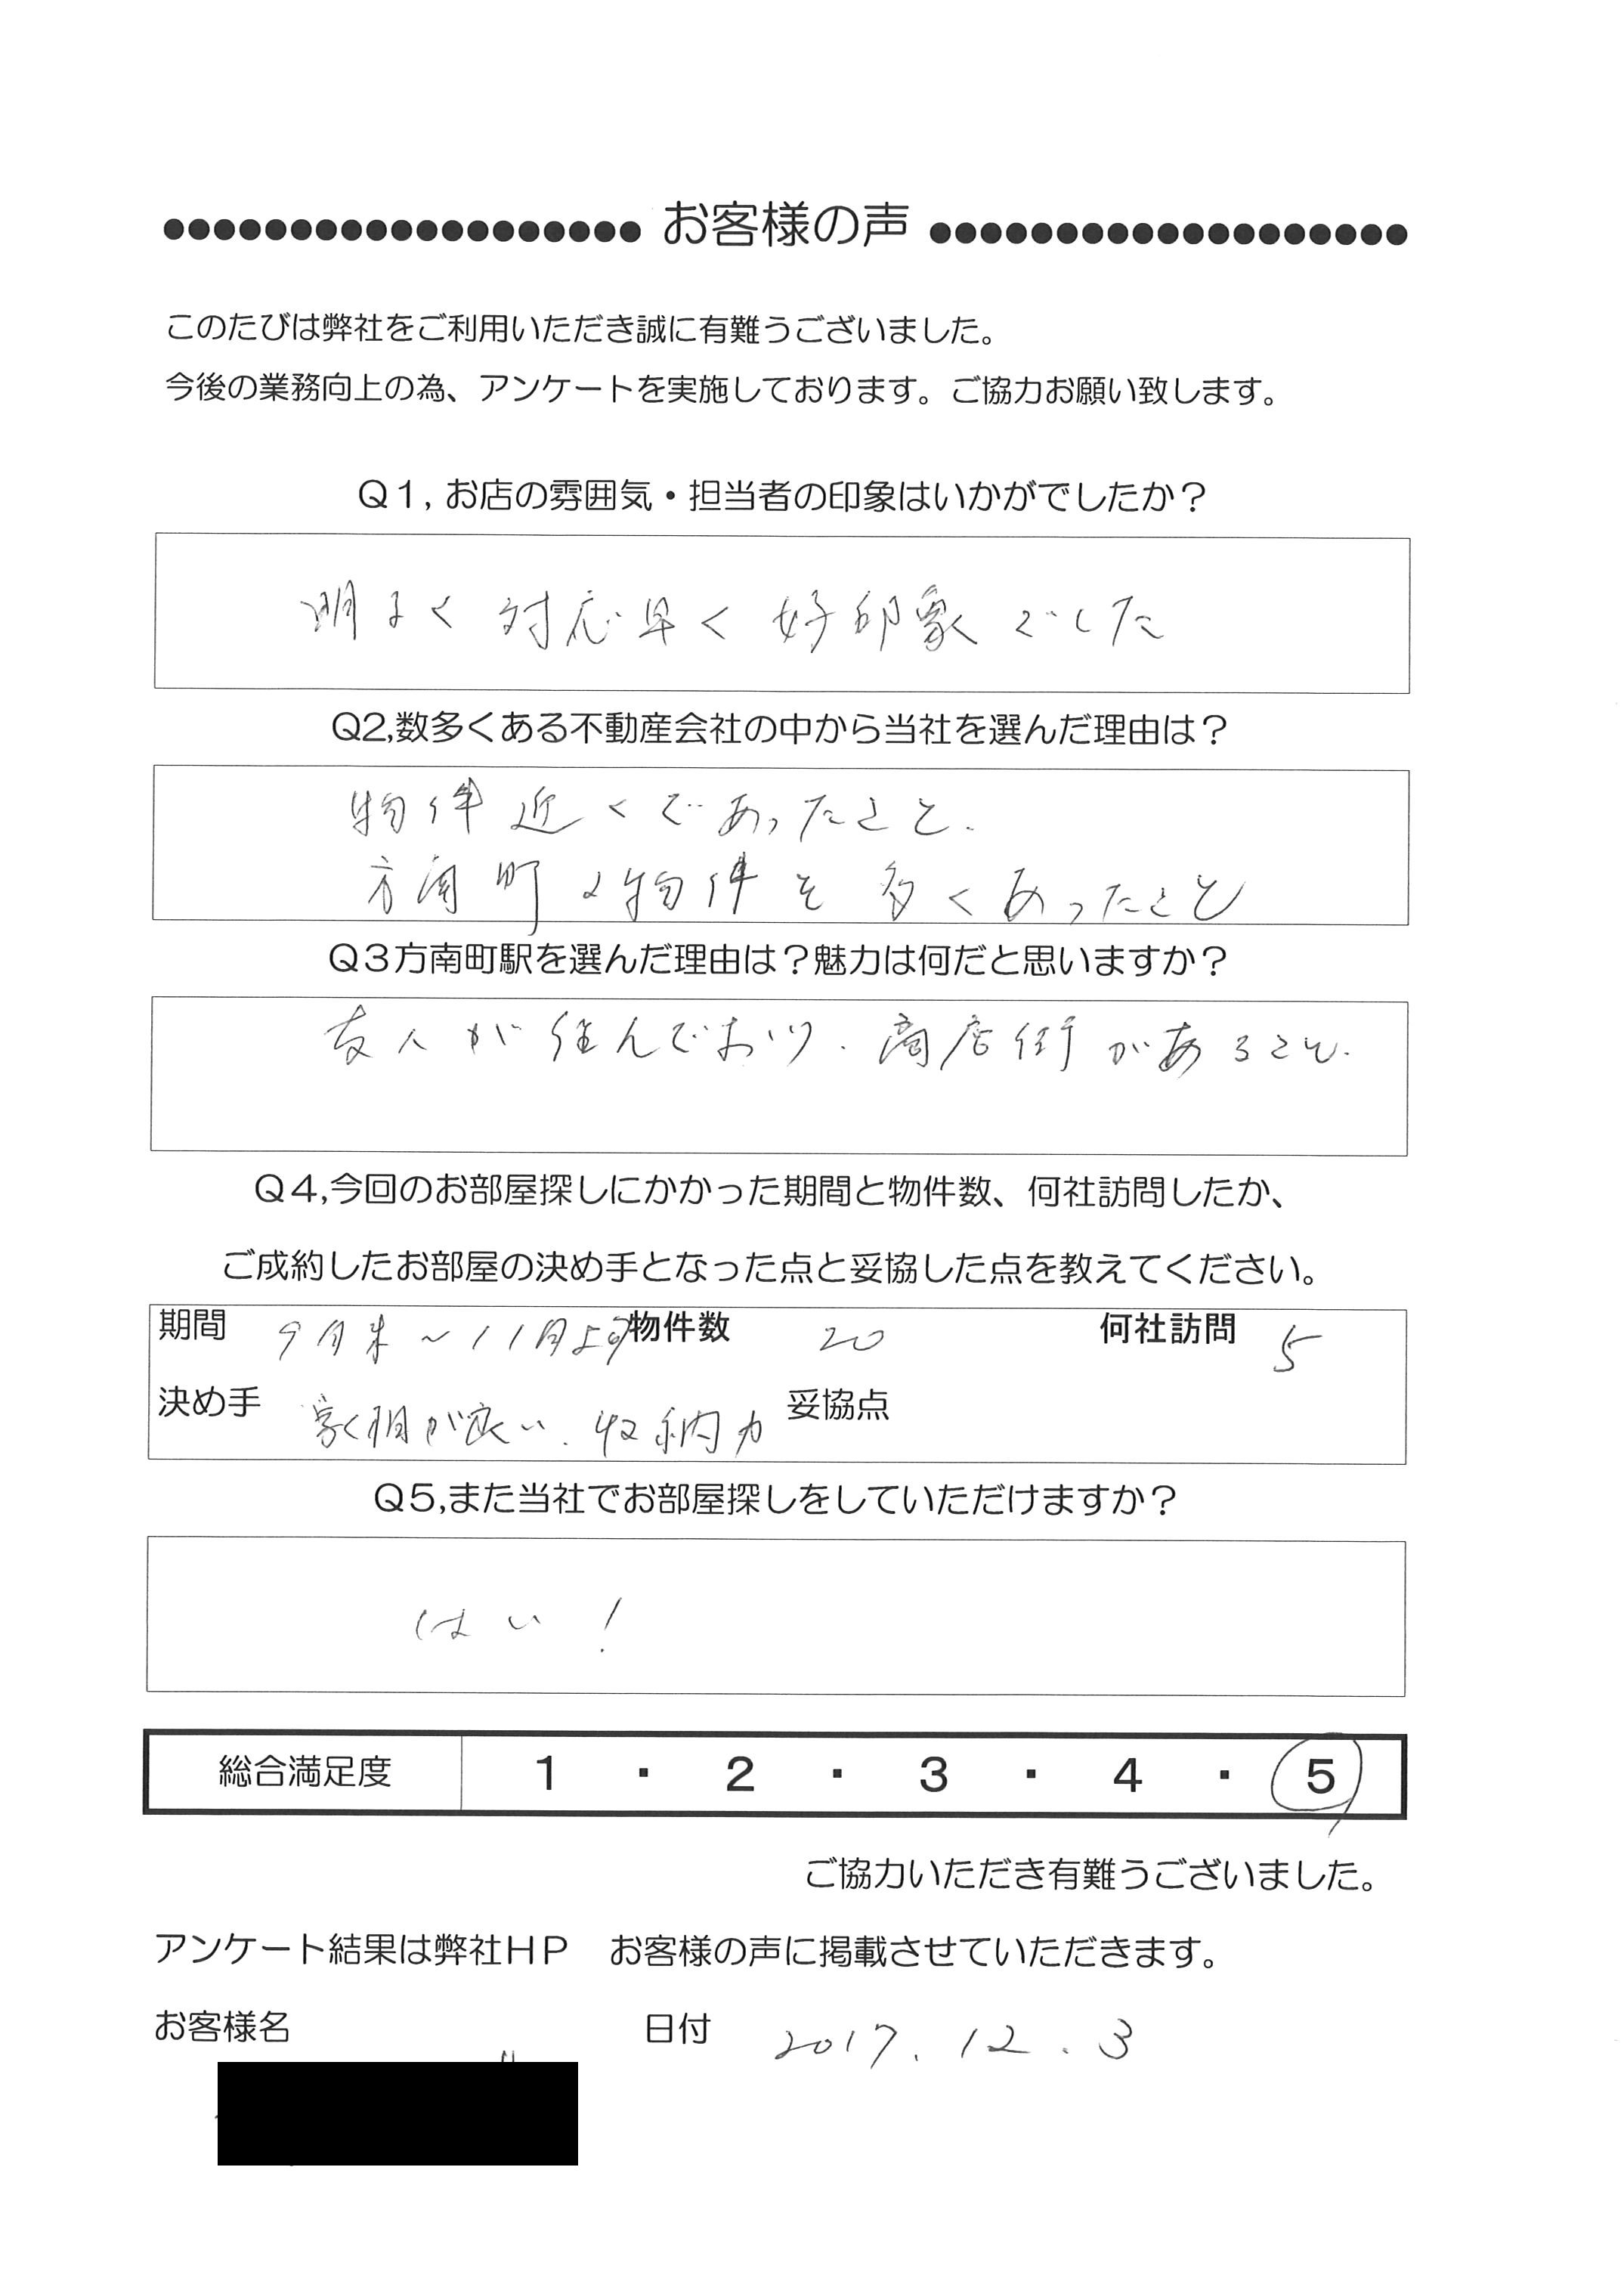 ●●●●●●●●●●●●●●●●●●● お客様の声 ●●●●●●●●●●●●●●●●●●●
このたびは弊社をご利用いただき誠に有難うございました。
今後の業務向上の為、アンケートを実施しております。ご協力お願い致します。
Q1, お店の雰囲気・担当者の印象はいかがでしたか？
明るく 対応早く 好印象でした
Q2,数多くある不動産会社の中から当社を選んだ理由は？
物件近くであったこと.
方南町の物件を多くあったこと
Q3方南町駅を選んだ理由は？魅力は何だと思いますか？
友人が住んでおり. 商店街があること.
Q4,今回のお部屋探しにかかった期間と物件数、何社訪問したか、
ご成約したお部屋の決め手となった点と妥協した点を教えてください。
期間 9月末～11月上旬 物件数 20 何社訪問 5
決め手 が良い. 収納力 妥協点
Q5,また当社でお部屋探しをしていただけますか？
はい！
総合満足度 1 ・ 2 ・ 3 ・ 4 ・ 5
ご協力いただき有難うございました。
アンケート結果は弊社HP　お客様の声に掲載させていただきます。
お客様名 日付 2017.12.3